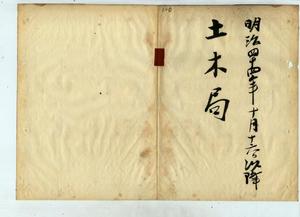 明治四十四年十月十六日以降
土木局